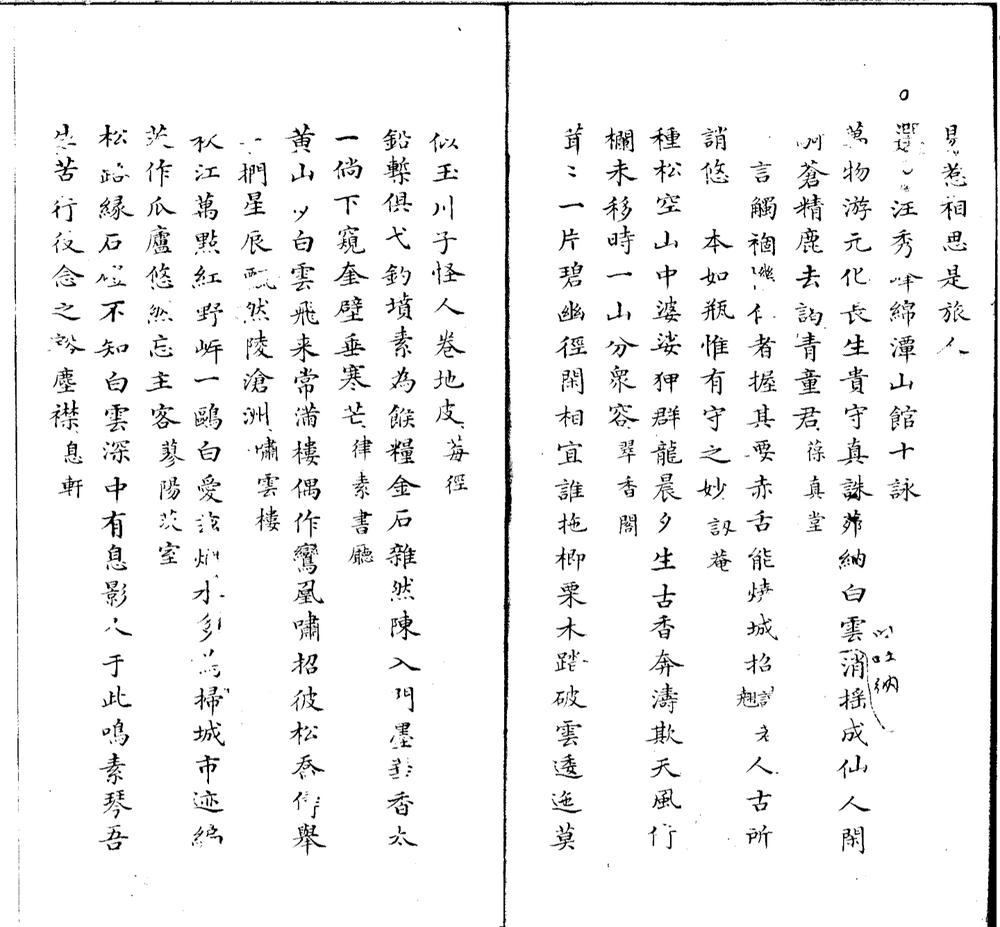 易惹相思是旅人
選 汪秀峰綿潭山館十詠
萬物游元化長生貴守真誅茆納白雲消搖成仙人閑
以吐納
蒼精鹿去詢青童君葆真堂
言觸禍機仁者握其要赤舌能燒城招 尤人古所
翹
誚悠 本如瓶惟有守之妙訒菴
種松空山中婆娑狎群龍晨夕生古香奔濤欺天風行
欄未移時一山分衆容翠香閣
茸〻一片碧幽徑閑相宜誰拖楖栗木踏破雲逶迤莫
似玉川子怪人卷地皮莓徑
鉛槧俱弋釣墳素為餱糧金石雜然陳入門墨華香太
一倘下窺奎壁垂寒芒律素書廳
黄山以白雲飛来常滿樓偶作鸞凰嘯招彼松喬儔舉
捫星辰飄然陵滄洲嘯雲樓
秋江萬點紅野岸一鷗白愛 烟水多 為掃城市迹編
茨作瓜廬悠然忘主客蓼陽茨室
松路緣石磴不知白雲深中有息影人于此鳴素琴吾
生苦行役念之豁塵襟息軒